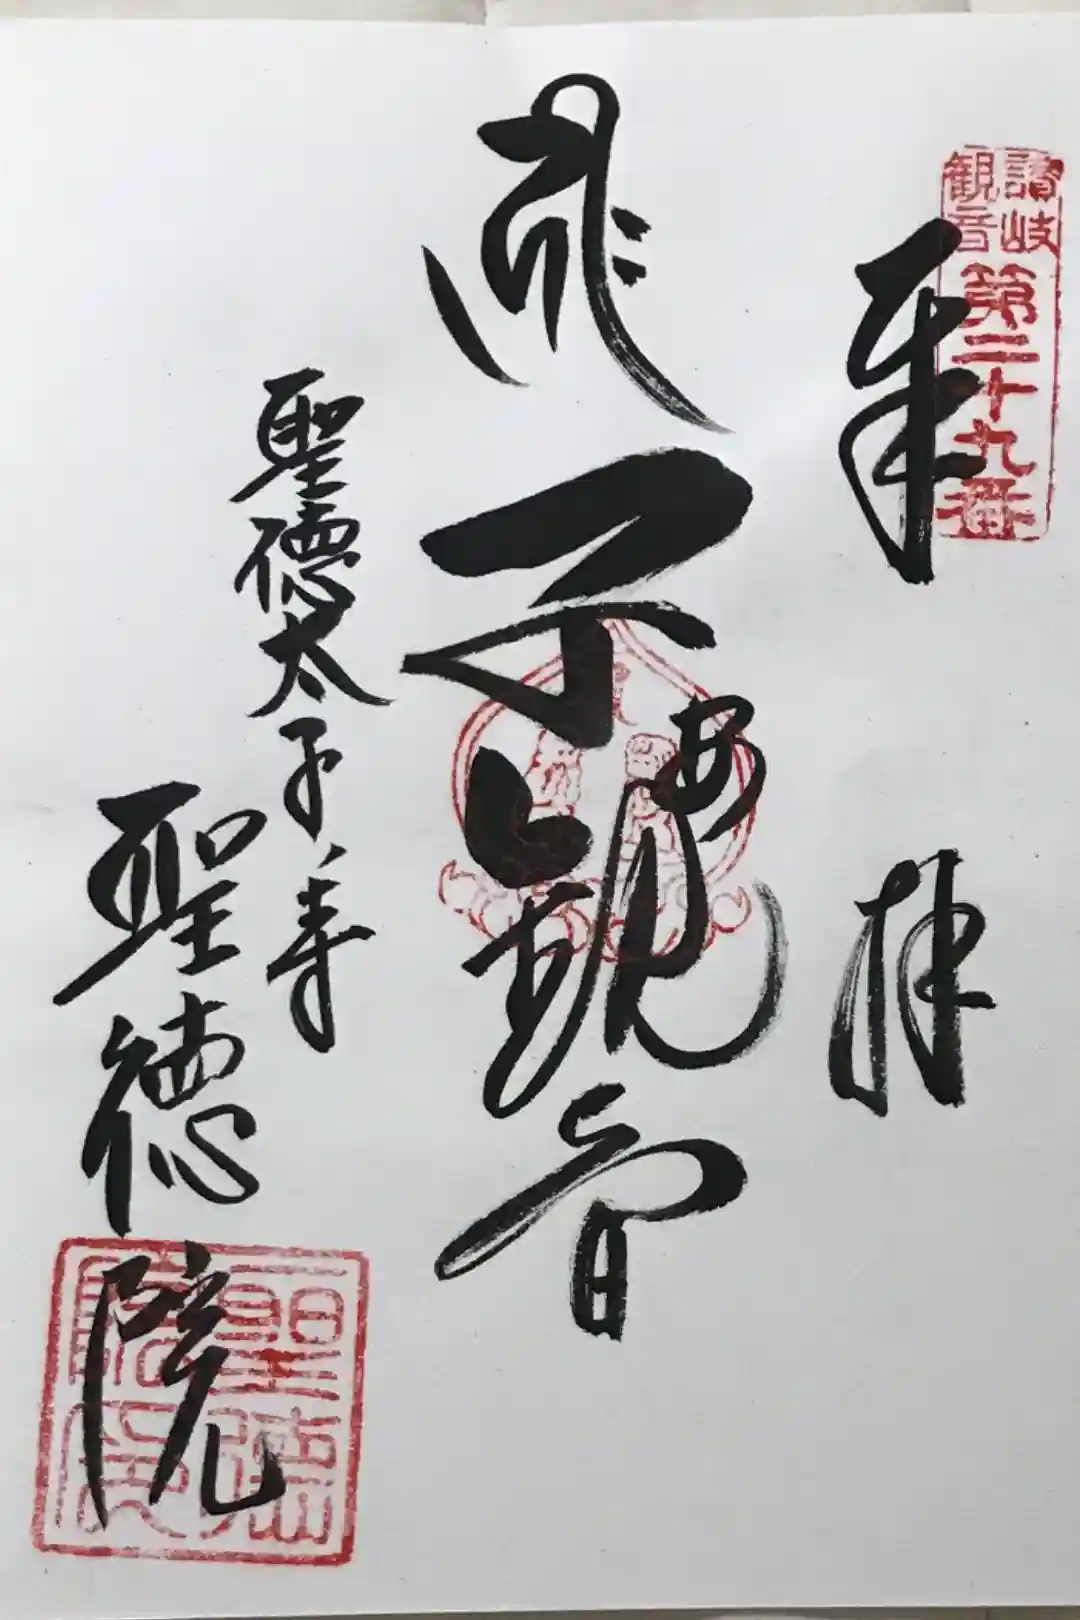 讃岐
観音
第二十九番
奉拝
子安観音
聖徳太子寺
聖徳院
聖徳院印